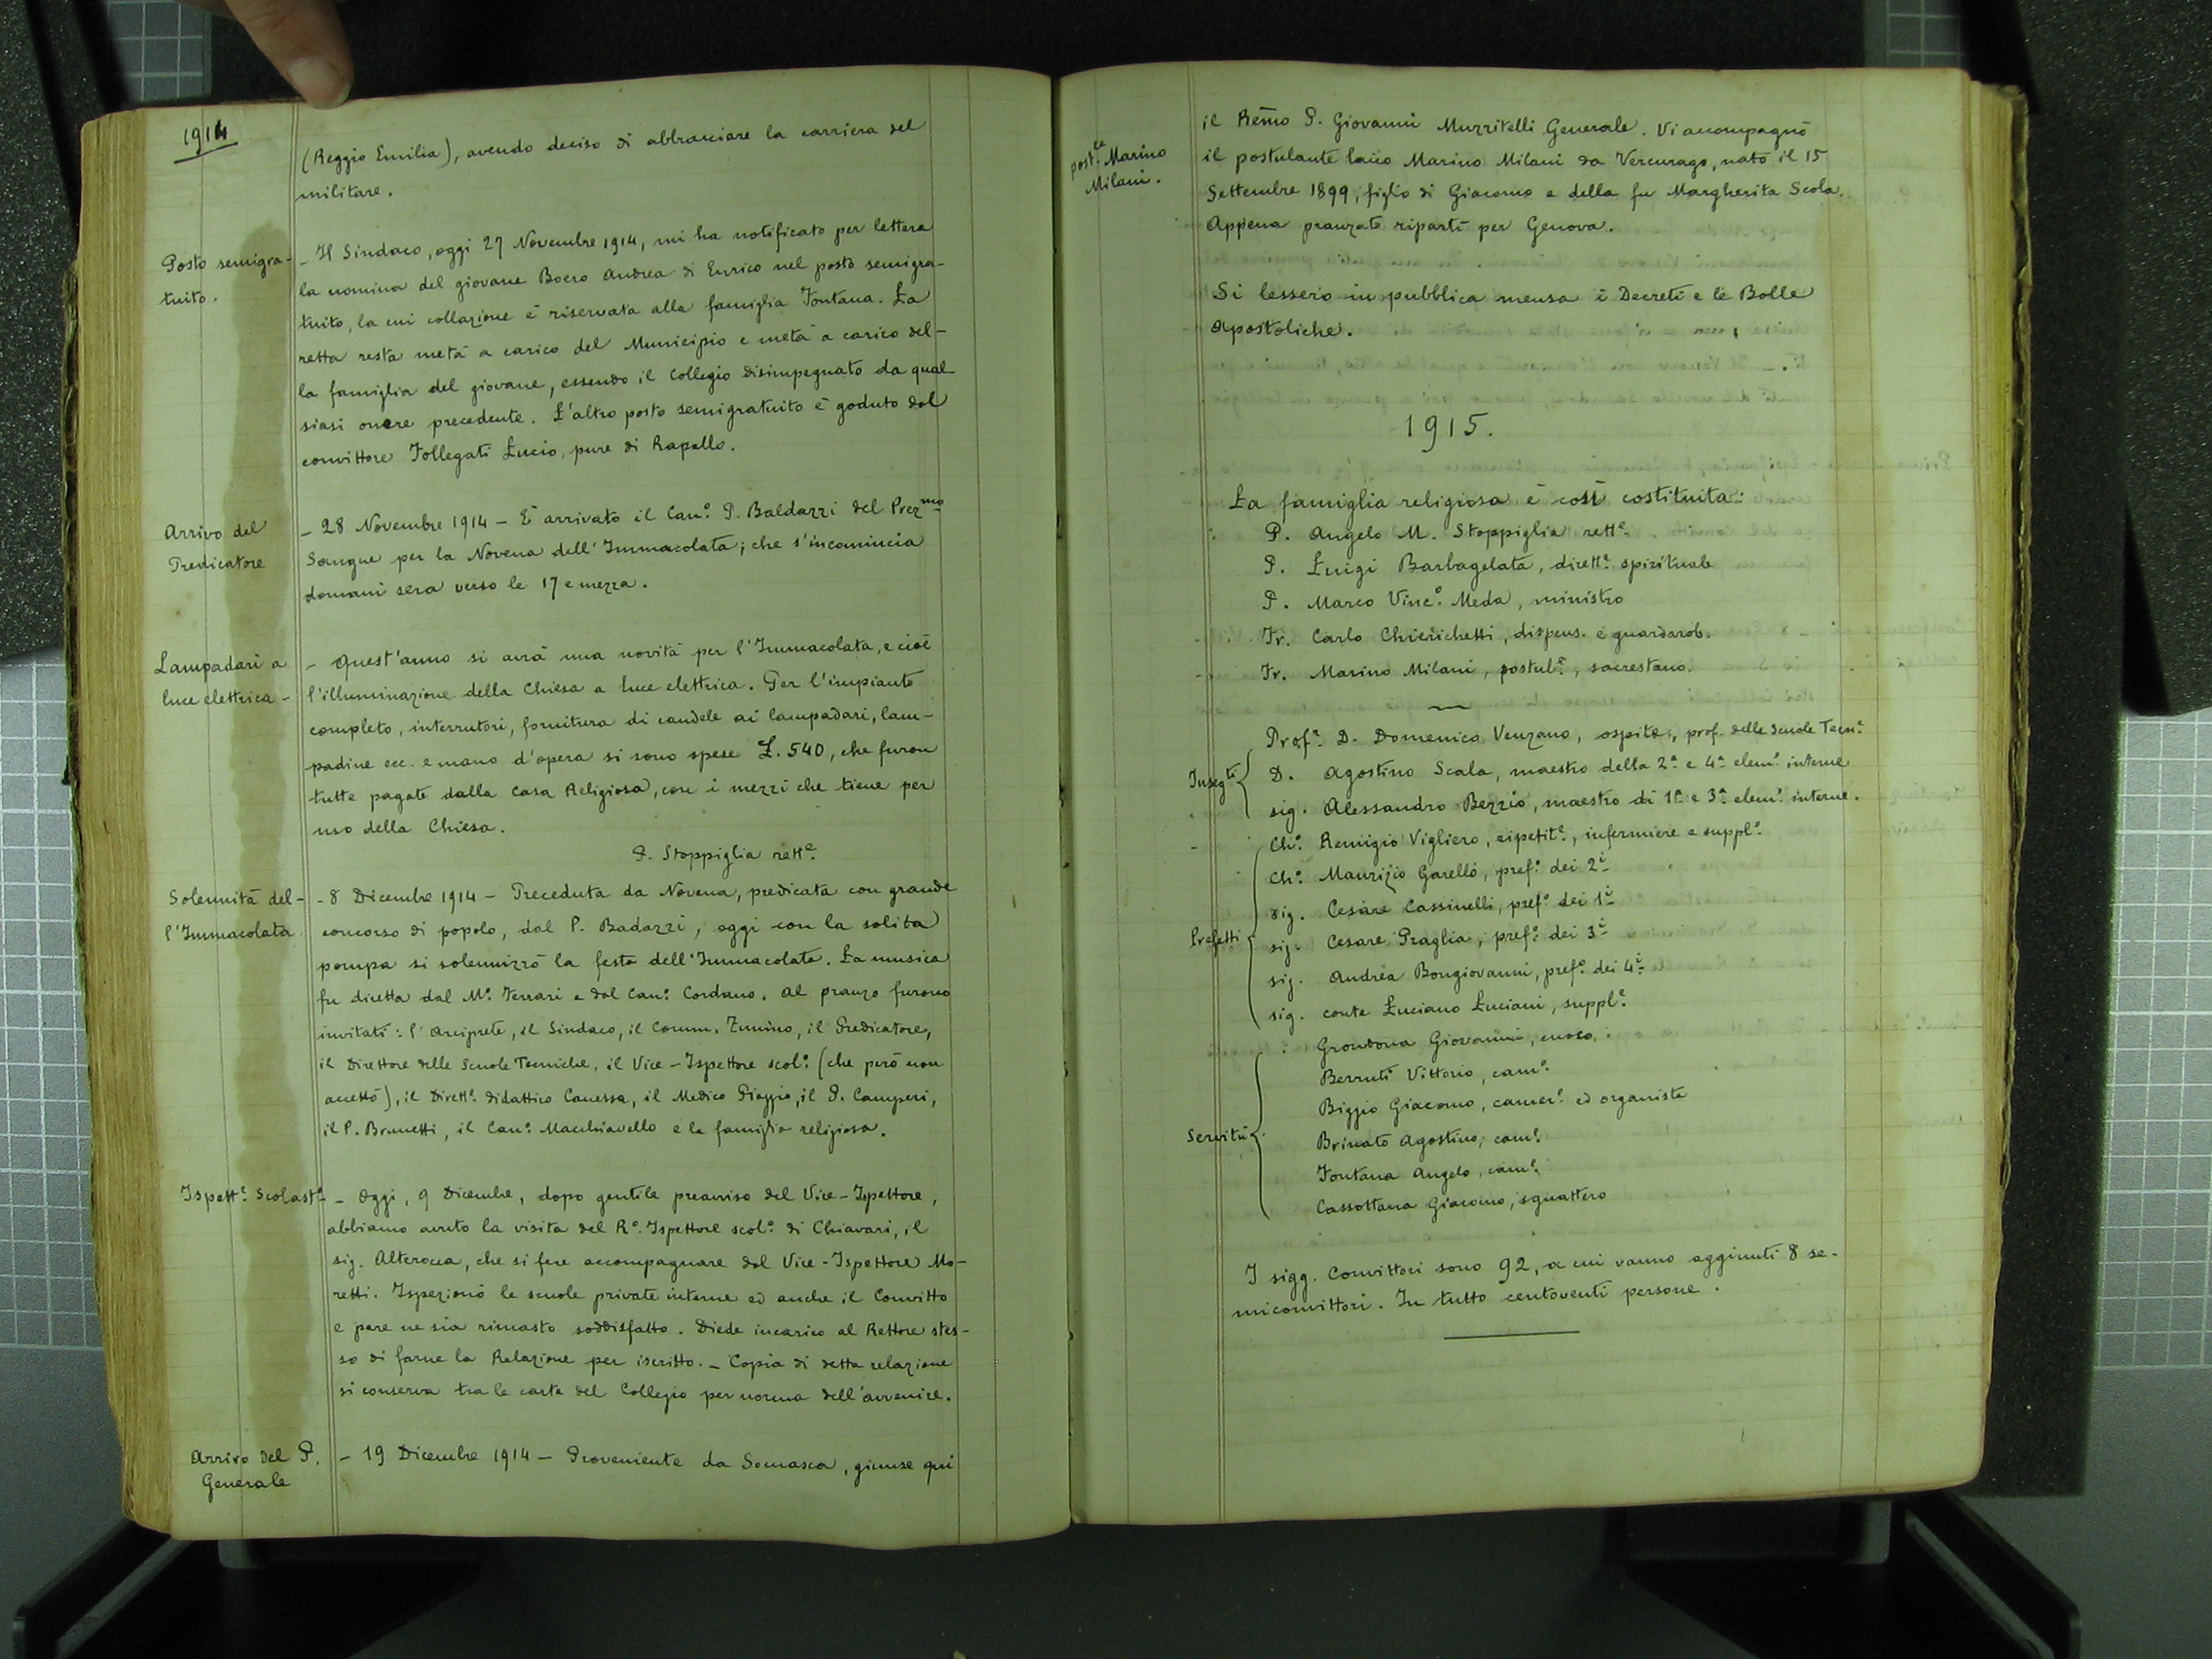 1914
(Reggio Emilia), avendo deciso di abbracciare la carriera del
militare.
Posto semigra-
tuito.
- Il Sindaco, oggi 27 Novembre 1914, mi ha notificato per lettera
la nomina del giovane Boero Andrea di Enrico nel posto semigra-
tuito, la cui collazione è riservata alla famiglia Fontana. La
retta resta metà a carico del Municipio e metà a carico del-
la famiglia del giovane, essendo il Collegio disimpegnato da qual
siasi onere precedente. L'altro posto semigratuito è goduto dal
convittore Follegati Lucio, pure di Rapallo.
Arrivo del
Predicatore
- 28 Novembre 1914 - È arrivato il Can.º P. Baldazzi del Prez.mo
Sangue per la Novena dell'Immacolata; che s'incomincia
domani sera verso le 17 e mezza.
Lampadari a
luce elettrica -
- Quest'anno si avrà una novità per l'Immacolata, e cioè
l'illuminazione della Chiesa a luce elettrica. Per l'impianto
completo, interrutori, fornitura di candele ai lampadari, lam-
padine ecc. e mano d'opera si sono spese £. 540, che furon
tutte pagate dalla Casa Religiosa, con i mezzi che tiene per
uso della Chiesa.
P. Stoppiglia rett.e
Solennità del-
l'Immacolata
- 8 Dicembre 1914 - Preceduta da Novena, predicata con grande
concorso di popolo, dal P. Badazzi, oggi con la solita
pompa si solennizzò la festa dell'Immacolata. La musica
fu diretta dal M.º Ferrari e dal Can.º Cordano. Al pranzo furono
invitati: l'Arciprete, il Sindaco, il Comm. Zunino, il Predicatore,
il Direttore delle Scuole Tecniche, il Vice-Ispettore scol.º (che però non
accettò), il Dirett.e didattico Canessa, il Medico Piaggio, il P. Camperi,
il P. Brunetti, il Can.º Macchiavello e la famiglia religiosa.
Ispett.e Scolast.º
- Oggi, 9 Dicembre, dopo gentile preavviso del Vice-Ispettore,
abbiamo avuto la visita del R.º Ispettore scol.º di Chiavari, il
sig. Alterocca, che si fece accompagnare dal Vice-Ispettore Mo-
retti. Ispezionò le scuole private interne ed anche il Convitto
e pare ne sia rimasto soddisfatto. Diede incarico al Rettore stes-
so di farne la Relazione per iscritto. - Copia di detta relazione
si conserva tra le carte del Collegio per norma dell'avvenire.
Arrivo del P.
Generale
- 19 Dicembre 1914 - Proveniente da Somasca, giunse qui
post.te Marino
Milani.
il Rēmo P. Giovanni Muzzitelli Generale. Vi accompagnò
il postulante laico Marino Milani da Vercurago, nato il 15
Settembre 1899, figlio di Giacomo e della fu Margherita Scola.
Appena pranzato ripartì per Genova.
Si lessero in pubblica mensa i Decreti e le Bolle
Apostoliche.
1915.
La famiglia religiosa è così costituita:
P. Angelo M. Stoppiglia rett.e
P. Luigi Barbagelata, dirett.e spirituale
P. Marco Vinc.º Meda, ministro
Fr. Carlo Chierichetti, dispens. e guardarob.
Fr. Marino Milani, postul.e, sacrestano.
Prof.e D. Domenico Venzano, ospite, prof. delle Scuole Tecn.e
Inseg.ti
D. Agostino Scala, maestro della 2ª e 4ª elem.e interne
sig. Alessandro Bezzio, maestro di 1ª e 3ª elem.e interne.
Ch.º Remigio Vigliero, ripetit.e, infermiere e suppl.e
Ch.º Maurizio Garello, pref.º dei 2i
sig. Cesare Cassinelli, pref.º dei 1i
Prefetti
sig. Cesare Praglia, pref.º dei 3i
sig. Andrea Bongiovanni, pref.º dei 4i
sig. conte Luciano Luciani, suppl.e
Grondona Giovanni, cuoco.
Berruti Vittorio, cam.e
Biggio Giacomo, camer.e ed organista
Servitù
Brinato Agostino, cam.e
Fontana Angelo, cam.e
Cassottana Giacomo, sguattero
I sigg. Convittori sono 92, a cui vanno aggiunti 8 se-
miconvittori. In tutto centoventi persone.